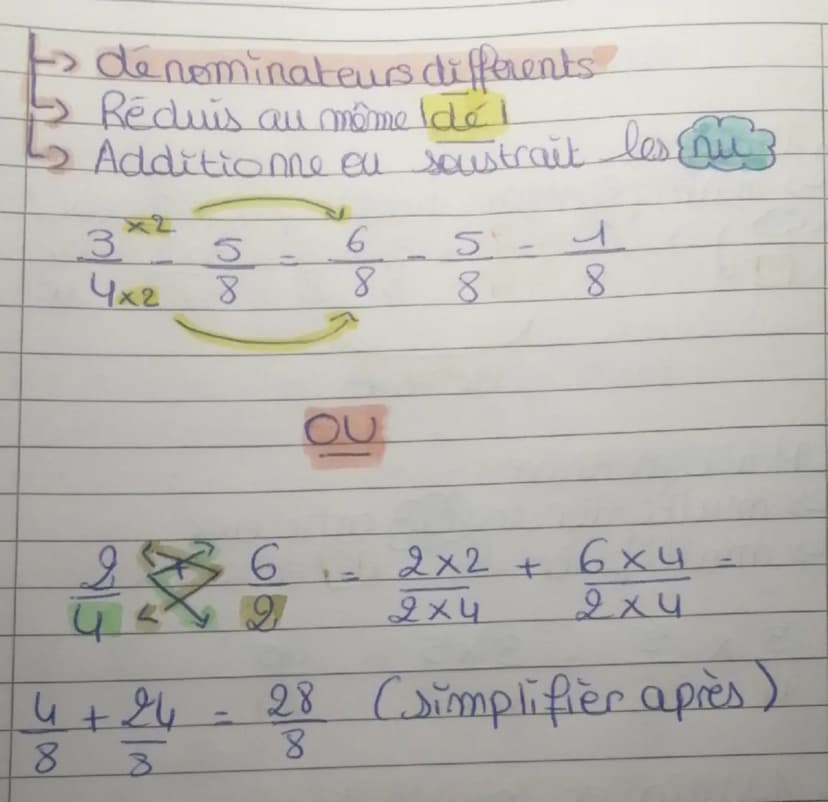 ↳ dénominateurs différents
↳ Réduis au même |dé|
↳ Additionne ou soustrait les nu
3×2/4×2 - 5/8 = 6/8 - 5/8 = 1/8
OU
2/4 + 6/2 = 2×2/2×4 + 6×4/2×4 =
4/8 + 24/8 = 28/8 (simplifièr après)